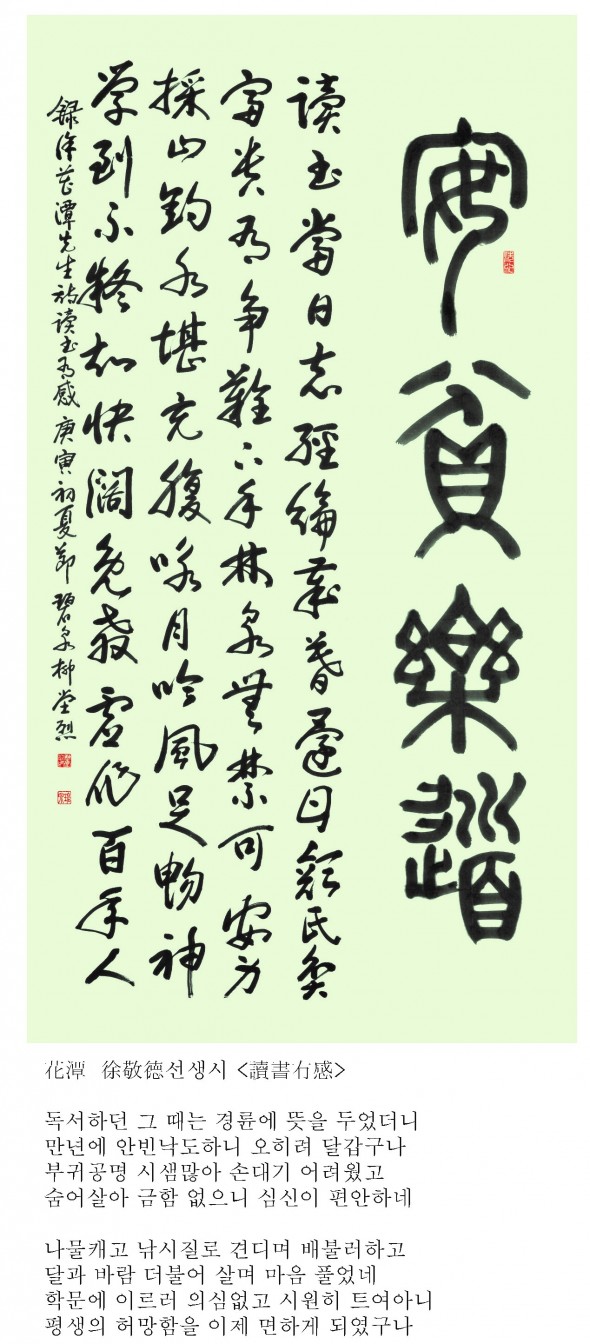 安貧樂道
讀書當日志經綸歲暮還甘顔氏貧
富貴有爭難下手林泉無禁可安身
採山釣水堪充腹咏月吟風足暢神
学到不疑知快濶免教虛作百年人
録徐花潭先生詩讀書有感 庚寅初夏節 碧泉柳烈
花潭 徐敬德선생시 <讀書有感>
독서하던 그 때는 경륜에 뜻을 두었더니
만년에 안빈낙도하니 오히려 달갑구나
부귀공명 시샘많아 손대기 어려웠고
숨어살아 금함 없으니 심신이 편안하네
나물캐고 낚시질로 견디며 배불러하고
달과 바람 더불어 살며 마음 풀었네
학문에 이르러 의심없고 시원히 트여아니
평생의 허망함을 이제 면하게 되였구나